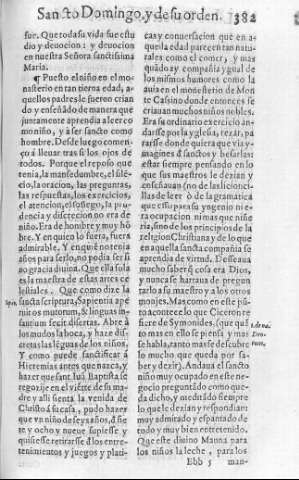 Sancto Domingo, y de su orden. 382
fue. Que toda su vida fue estu
dio y deuocion: y deuocion
en nuestra Señora sanctissima
Maria.
¶ Puesto el niño en el mo
nasterio en tan tierna edad, a
quellos padres le fueron crian
do y enseñado de manera que
juntamente aprendia a leer co
mo niño, y a ser sancto como
hombre. Desde luego començ
ò a lleuar tras si los ojos de
todos. Porque el reposo que
tenia, la mansedumbre, el silē-
cio, la oracion, las preguntas,
las respuestas, los exercicios,
el atencion, el sossiego, la pru
dencia y discrecion no era de
niño. Era de hombre y muy hō
bre. Y en quien lo fuera, fuera
admirable. Y en quiē no tenia
años para serlo, no podia ser si
no gracia diuina. Que ella sola
es la maestra de estas artes ce
lestiales. Que como dize la
Sap. sancta scriptura, Sapientia ape
ruit os mutorum, & linguas in-
fantium fecit disertas. Abre à
los mudos la boca, y haze dis
cretas las lēguas de los niños.
Y como puede sanctificar à
Hieremias antes que nazca, y
hazer que sant Iuā Baptista se
regozije en el viētre de su ma
dre y alli sienta la venida de
Christo à su casa, pudo hazer
que vn niño de seys años, ò sie
te, ò ocho y nueue supiesse y
quisiesse retirarse d̄ los entre-
tenimientos y juegos y plati-
cas y conuersacion que en a-
quella edad parecen tan natu-
rales como el comer, y mas
quādo ay compañia y gual de
los mismos humores como la
auia en el monesterio de Mon
te Cassino donde entonces se
criauan muchos niños nobles.
Era su ordinario exercicio an-
darse por la yglesia, rezar, pa
rarse donde quiera que via y-
magines d̄ sanctos y besarlas:
estar siempre pensando en lo
que sus maestros le dezian y
enseñauan (no de las licioncí-
llas de leer ò de la gramatica
que esso para su yngenio ni e-
ra ocupacion ni mas que niñe
ria, sino de los principios de la
religion Christiana y de lo que
en aquella sancta compañia se
aprendia de virtud. Desseaua
mucho saber q̄ cosa era Dios,
y nunca se hartaua de pregun
tarlo a su maestro y a los otros
monjes. Mas como en este pū-
to acontece lo que Ciceron re
fiere de Symonides, (que quā
to mas en ello se piensa y mas
se habla, tanto mas se descubre
lo mucho que queda por sa-
ber y dezir). Andaua el sancto
niño muy ocupado en este ne
gocio preguntādo como que-
da dicho, y meditādo siempre
lo que le dezian y respondian:
muy admirado y espantado de
todo y muy bien entretenido.
Que este diuino Manna para
los niños la leche, para los
Ebb 5 man-